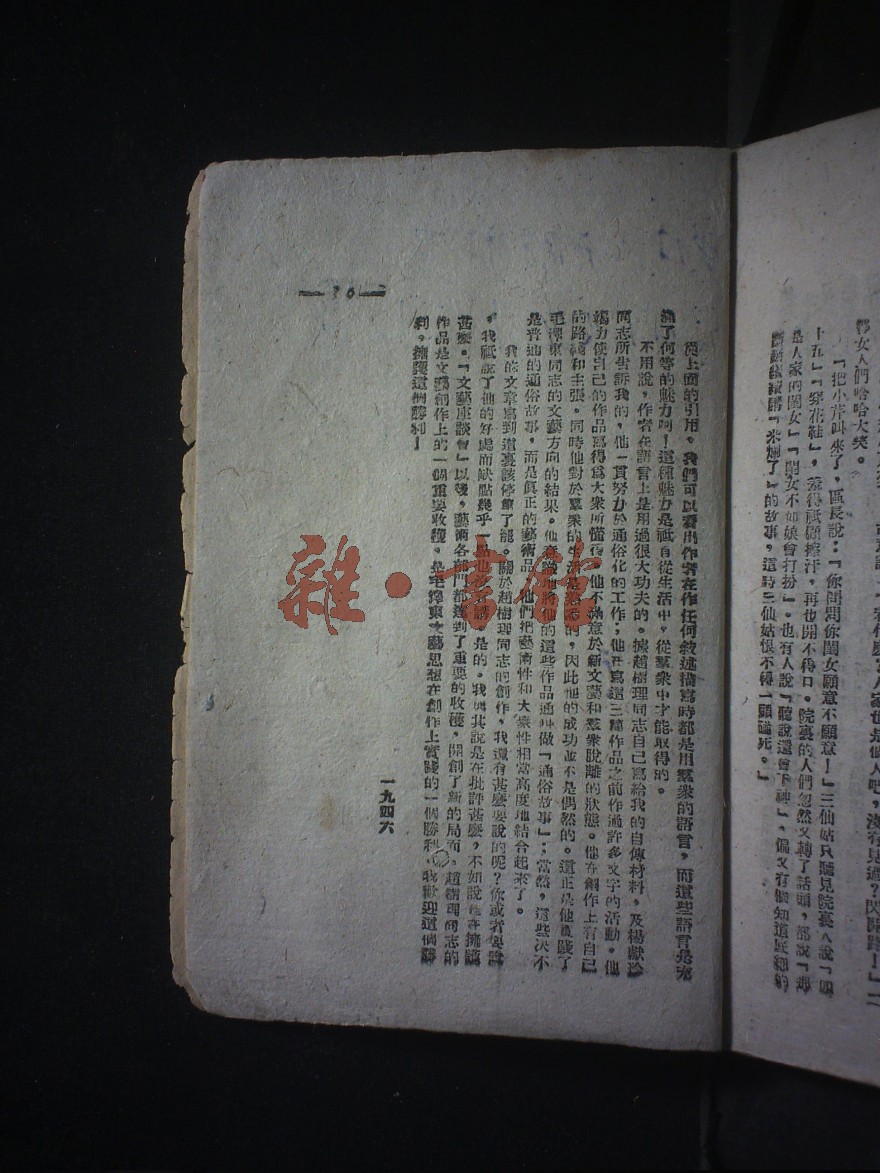 鄰女人們哈哈大笑。
『把小芹叫來了，區長說：『你問問你閨女願意不願意！』三仙姑只聽見院裏人說『四
十五』『穿花鞋』，羞得祇顧擦汗，再也開不得口。院裏的人們忽然又轉了話頭，都說『那
是人家的閨女』『閨女不如娘會打扮』。也有人說『聽說還會下神』，偏又有個知道底細的
斷斷續續講『米爛了』的故事，這時三仙姑恨不得一頭碰死。』
從上面的引用，我們可以看出作者在作任何敘述描寫時都是用羣衆的語言，而這些語言是充
滿了何等的魅力呵！這種魅力是祇有從生活中，從羣衆中才能取得的。
不用說，作者在語言上是用過很大功夫的。據趙樹理同志自己寫給我的自傳材料，及楊獻珍
同志所告訴我的，他一貫努力於通俗化的工作；他在寫這三種作品之前作過許多文字的活動。他
竭力使自己的作品寫得爲大衆所懂得。他不滿意於新文藝和羣衆脫離的狀態。他在創作上有自己
的路線和主張。同時他對於羣衆的生活是熟悉的，因此他的成功並不是偶然的。這正是他實踐了
毛澤東同志的文藝方向的結果。他意識地將他的這些作品通叫做『通俗故事』；當然，這些決不
是普通的通俗故事，而是眞正的藝術品，他們把藝術性和大衆性相當高度地結合起來了。
我的文章寫到這裏該停筆了罷。關於趙樹理同志的創作，我還有甚麼要說的呢？你或者要說
，我祇說了他的好處而缺點幾乎一點也沒有講。是的。我與其說是在批評甚麼，不如說是在擁護
甚麼。『文藝座談會』以後，藝術各部門都達到了重要的收穫，開創了新的局面，趙樹理同志的
作品是文學創作上的一個重要收穫，是毛澤東文藝思想在創作上實踐的一個勝利。我歡迎這個勝
利，擁護這個勝利！
一九四六
—76—
雜·書館